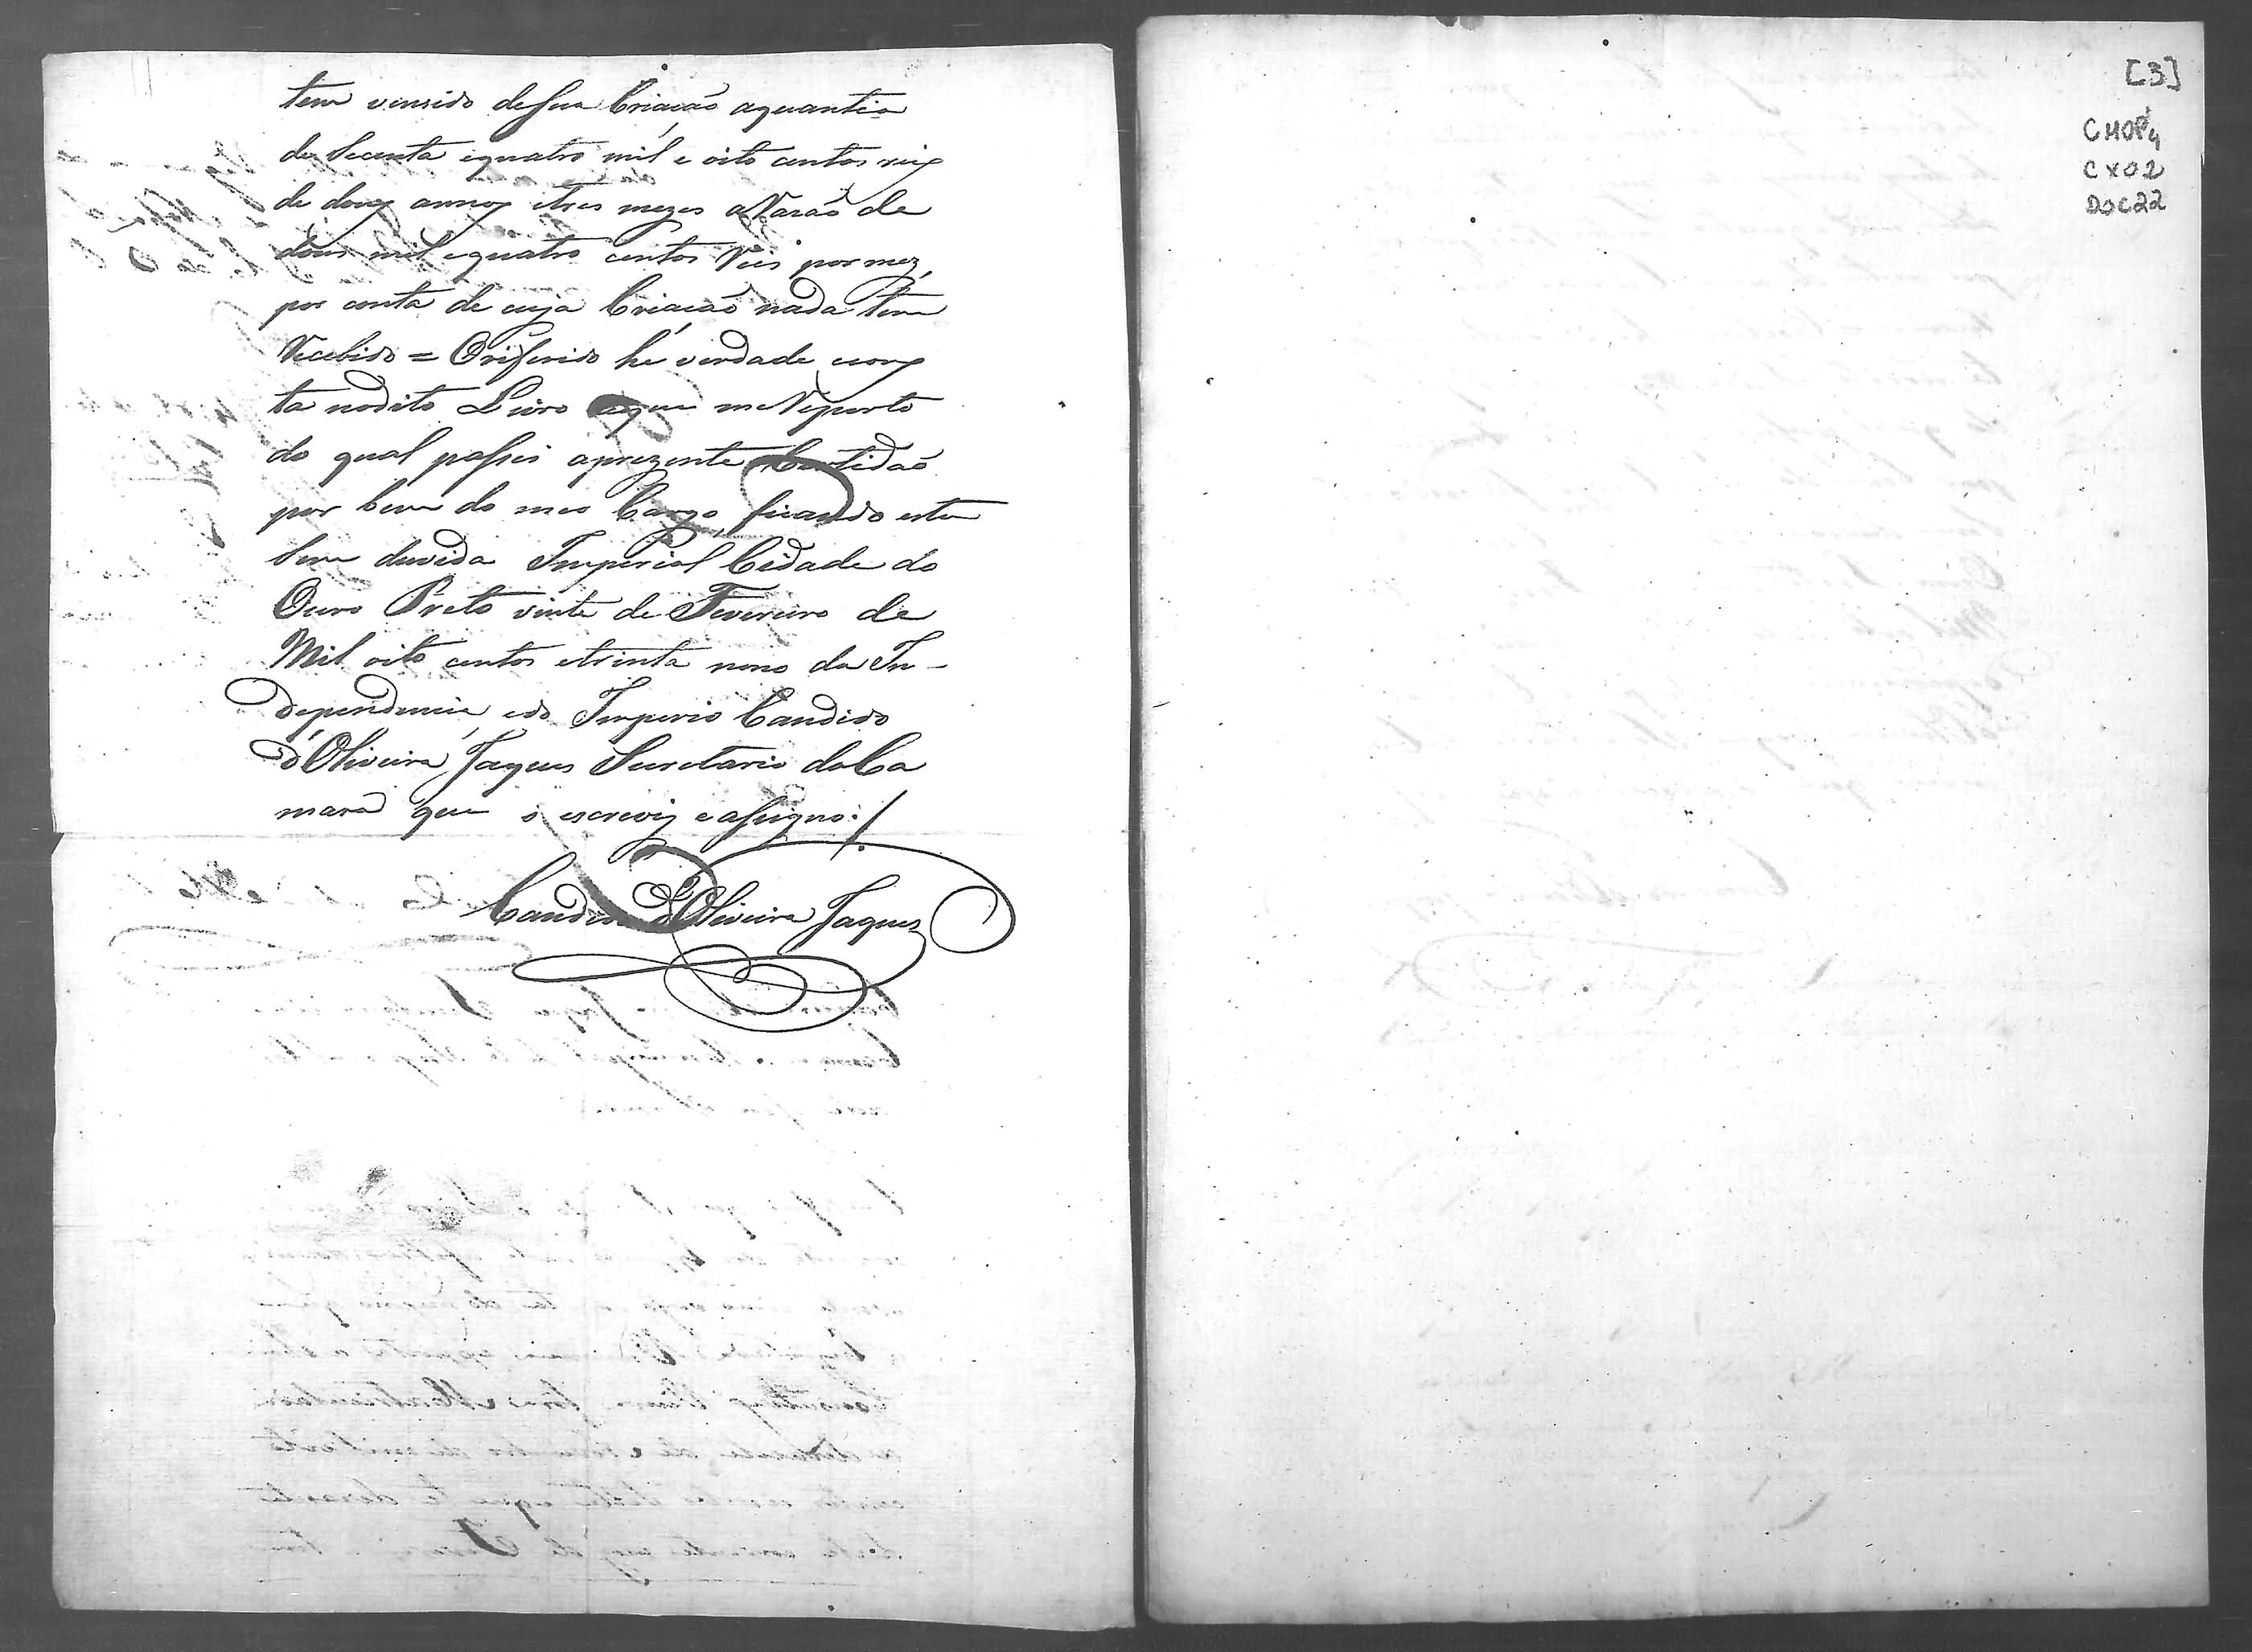 tem vensido desua Criacaõ aquantia
de Secenta equatro mil e oito centos reis
de dous annos etres mezes aRazaõ de
dous mil equatro centos Reis por mez,
por conta de cuja Criacaõ nada tem
Recebido = Oriferido hé verdade econs
ta nodito Livro aque me Reporto
do qual passei aprezente Certidaõ
por bem do meo Cargo, ficando esta
sem duvida Imperial Cidade do
Ouro Preto vinte de Fevereiro de
Mil oito centos etrinta nono da In-
dependencia, edo Imperio Candido
d'Oliveira Jaques Secretario daCa
mara que o escrevy e assigno:/
Candido d'Oliveira Jaques
[3]
CMOP
CX02
DOC22